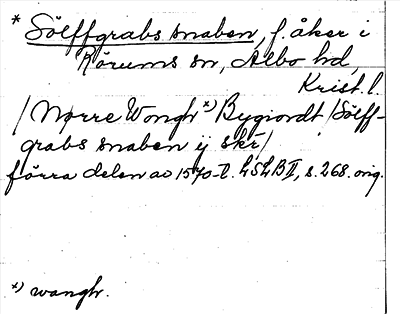 * Sölffgrabs snaben, f. åker i
Rörums sn, Albo hd,
Krist. l.
/ Nørre Wongh *) Bygiordt / Sölff-
grabs snaben ij skr /
förra delen av 1570-t. LSLB II, s. 268. orig.
*) wangh.